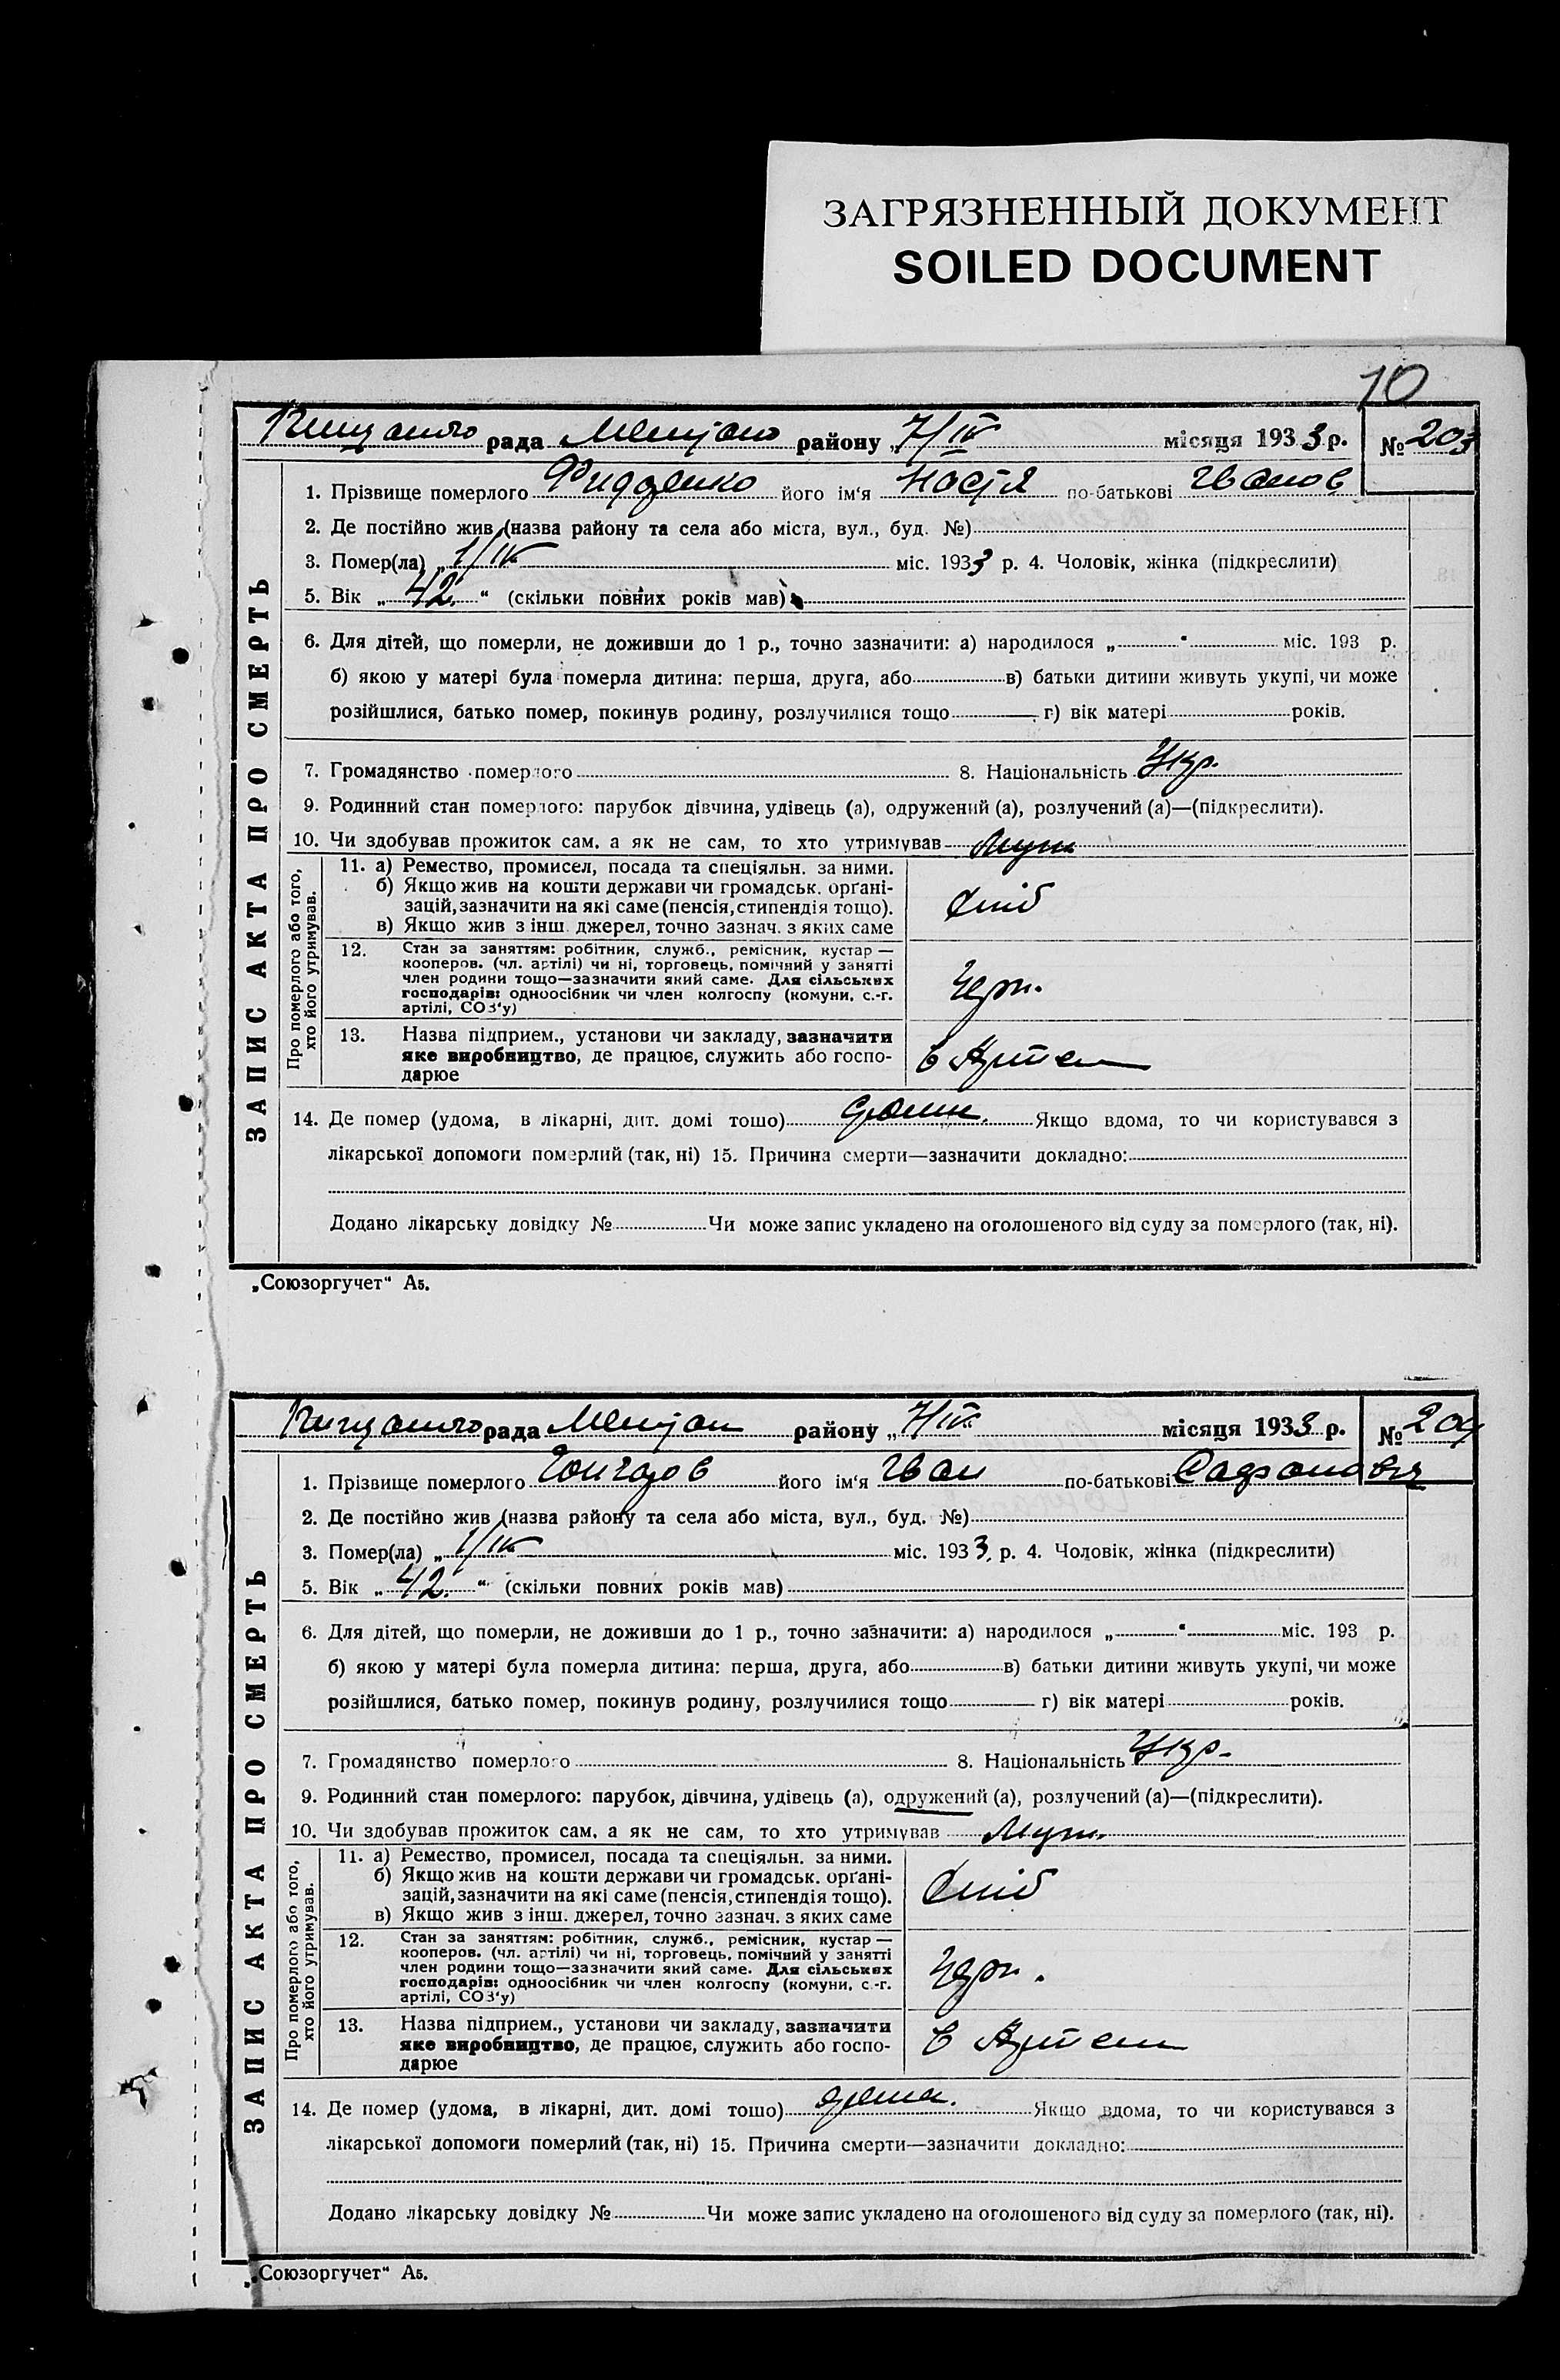 ЗАГРЯЗНЕННЫЙ ДОКУМЕНТ
SOILED DOCUMENT
10
рада району „7/IV місяця 1933 р. № 203
1. Прізвище померлого його ім'я Настя по-батькові Іванов
2. Де постійно жив (назва району та села або міста, вул., буд. №)
3. Помер(ла) „1/IV міс. 1933 р. 4. Чоловік, жінка (підкреслити)
5. Вік „42.“ (скільки повних років мав)
6. Для дітей, що померли, не доживши до 1 р., точно зазначити: а) народилося „ “ міс. 193 р.
б) якою у матері була померла дитина: перша, друга, або в) батьки дитини живуть укупі, чи може
розійшлися, батько помер, покинув родину, розлучилися тощо г) вік матері років.
7. Громадянство померлого 8. Національність Укр.
9. Родинний стан померлого: парубок дівчина, удівець (а), одружений (а), розлучений (а)—(підкреслити).
10. Чи здобував прожиток сам, а як не сам, то хто утримував
11. а) Ремество, промисел, посада та спеціяльн. за ними.
б) Якщо жив на кошти держави чи громадськ. орґані-
зацій, зазначити на які саме (пенсія, стипендія тощо).
в) Якщо жив з інш. джерел, точно зазнач. з яких саме
12. Стан за заняттям: робітник, служб., ремісник, кустар —
кооперов. (чл. артілі) чи ні, торговець, помічний у занятті
член родини тощо—зазначити який саме. Для сільських
господарів: одноосібник чи член колгоспу (комуни, с.-г.
артілі, СОЗ'у)
13. Назва підприєм., установи чи закладу, зазначити
яке виробництво, де працює, служить або госпо-
дарює
14. Де помер (удома, в лікарні, дит. домі тощо) Якщо вдома, то чи користувався з
лікарської допомоги померлий (так, ні) 15. Причина смерти—зазначити докладно:
Додано лікарську довідку № Чи може запис укладено на оголошеного від суду за померлого (так, ні).
ЗАПИС АКТА ПРО СМЕРТЬ
Про померлого або того,
хто його утримував.
„Союзоргучет“ А5.
рада району „7/IV місяця 1933 р. № 204
1. Прізвище померлого Гончаров його ім'я Іван по-батькові
2. Де постійно жив (назва району та села або міста, вул., буд. №)
3. Помер(ла) „1/IV“ міс. 1933 р. 4. Чоловік, жінка (підкреслити)
5. Вік „42.“ (скільки повних років мав)
6. Для дітей, що померли, не доживши до 1 р., точно зазначити: а) народилося „ “ міс. 193 р.
б) якою у матері була померла дитина: перша, друга, або в) батьки дитини живуть укупі, чи може
розійшлися, батько помер, покинув родину, розлучилися тощо г) вік матері років.
7. Громадянство померлого 8. Національність Укр.
9. Родинний стан померлого: парубок, дівчина, удівець (а), одружений (а), розлучений (а)—(підкреслити).
10. Чи здобував прожиток сам, а як не сам, то хто утримував
11. а) Ремество, промисел, посада та спеціяльн. за ними.
б) Якщо жив на кошти держави чи громадськ. орґані-
зацій, зазначити на які саме (пенсія, стипендія тощо).
в) Якщо жив з інш. джерел, точно зазнач. з яких саме
12. Стан за заняттям: робітник, служб., ремісник, кустар —
кооперов. (чл. артілі) чи ні, торговець, помічний у занятті
член родини тощо—зазначити який саме. Для сільських
господарів: одноосібник чи член колгоспу (комуни, с.-г.
артілі, СОЗ'у)
13. Назва підприєм., установи чи закладу, зазначити
яке виробництво, де працює, служить або госпо-
дарює
14. Де помер (удома, в лікарні, дит. домі тощо) дома. Якщо вдома, то чи користувався з
лікарської допомоги померлий (так, ні) 15. Причина смерти—зазначити докладно:
Додано лікарську довідку № Чи може запис укладено на оголошеного від суду за померлого (так, ні).
ЗАПИС АКТА ПРО СМЕРТЬ
Про померлого або того,
хто його утримував.
„Союзоргучет“ А5.